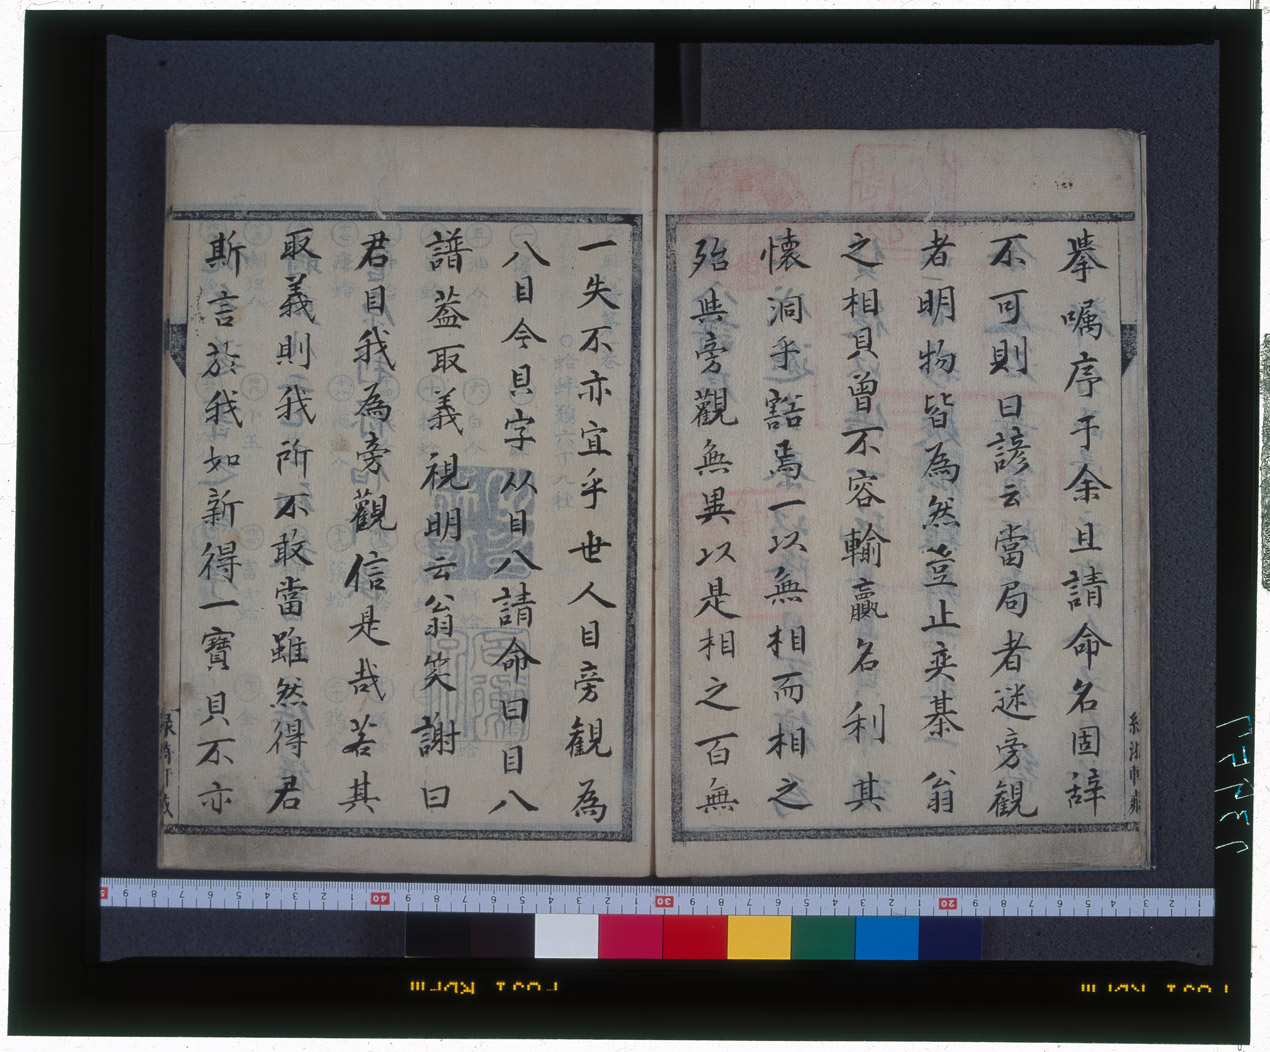 摹嘱序于余且請命名固辞
不可則曰諺云當局者迷旁觀
者明物皆為然豈止奕棊翁
之相貝曾不容輸贏名利其
懷洞乎豁焉一以無相而相之
殆與旁觀無異以是相之百無
一失不亦宜乎世人目旁觀為
八目今貝字从目八請命曰目八
譜葢取義視明云翁笑謝曰
君目我為旁觀信是哉若其
取義則我所不敢當雖然得君
斯言於我如新得一寶貝不亦